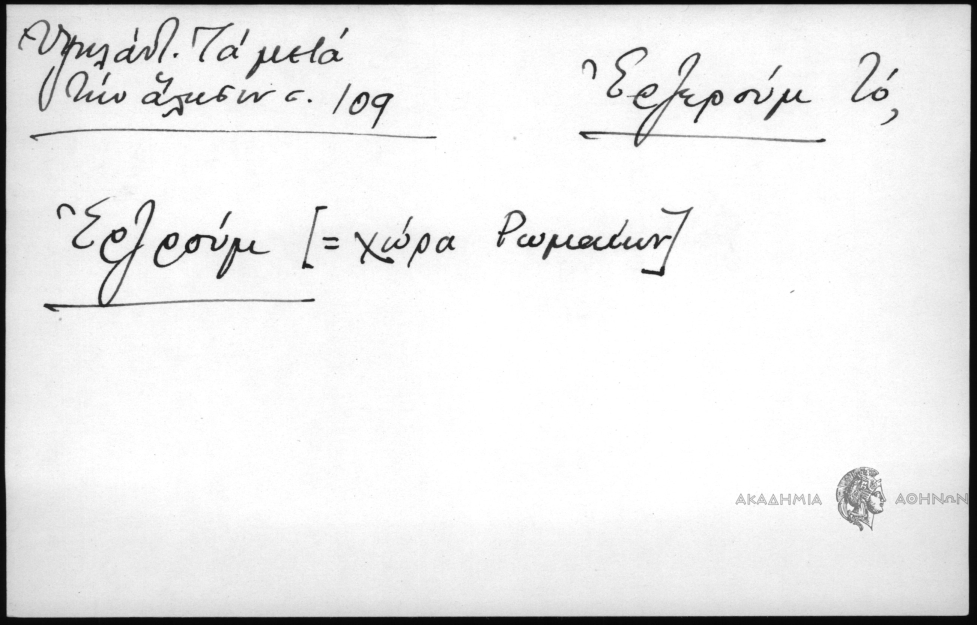 Ὑψηλάντ. Τά μετά
τήν ἅλωσιν σ. 109
Ἐρζερούμ τό,
Ἐρζρούμ [= χώρα Ρωμαίων]
ΑΚΑΔΗΜΙΑ ΑΘΗΝΩΝ